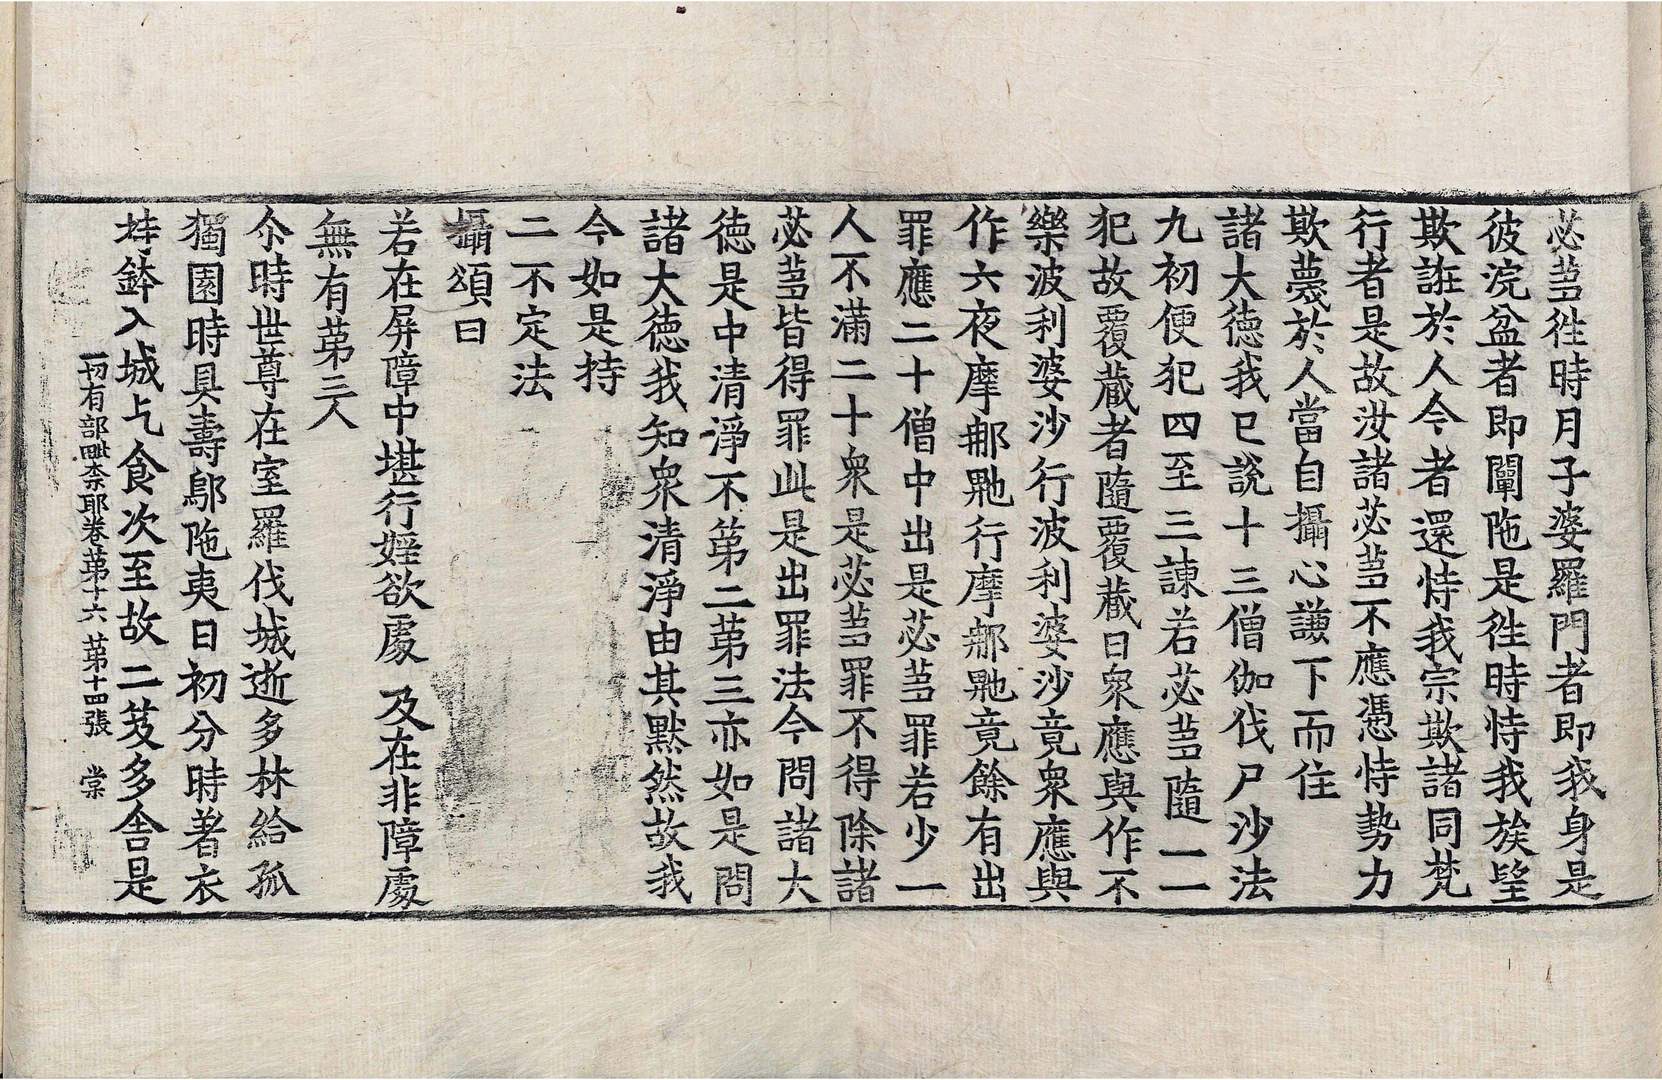 苾蒭徃時月子婆羅門者即我身是
彼浣盆者即闡陁是徃時恃我族望
欺誑於人今者還恃我宗欺諸同梵
行者是故汝諸苾蒭不應憑恃勢力
欺蔑於人當自攝心謙下而住
諸大徳我已說十三僧伽伐尸沙法
九初便犯四至三諫若苾蒭隨一一
犯故覆藏者隨覆藏日衆應與作不
樂波利婆沙行波利婆沙竟衆應與
作六夜摩䣯𠼝行摩䣯𠼝竟餘有出
罪應二十僧中出是苾蒭罪若少一
人不滿二十衆是苾蒭罪不得除諸
苾蒭皆得罪此是出罪法今問諸大
徳是中清淨不第二第三亦如是問
諸大徳我知衆清淨由其默然故我
今如是持
二不定法
攝頌曰
若在屏障中堪行婬欲處 及在非障處
無有第三人
尒時世尊在室羅伐城逝多林給孤
獨園時具壽鄔陁夷日初分時著衣
持鉢入城乞食次至故二笈多舍是
一切有部毗奈耶卷第十六 第十四張 棠